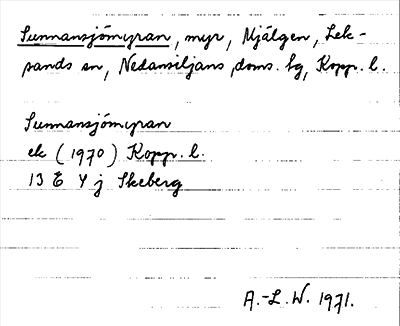 Sunnansjömyran, myr, Mjälgen, Lek-
sands sn, Nedansiljans doms. hg, Kopp. l.
Sunnansjömyran
ek (1970) Kopp. l.
13 E 4 j Skeberg
A.-L. W. 1971.